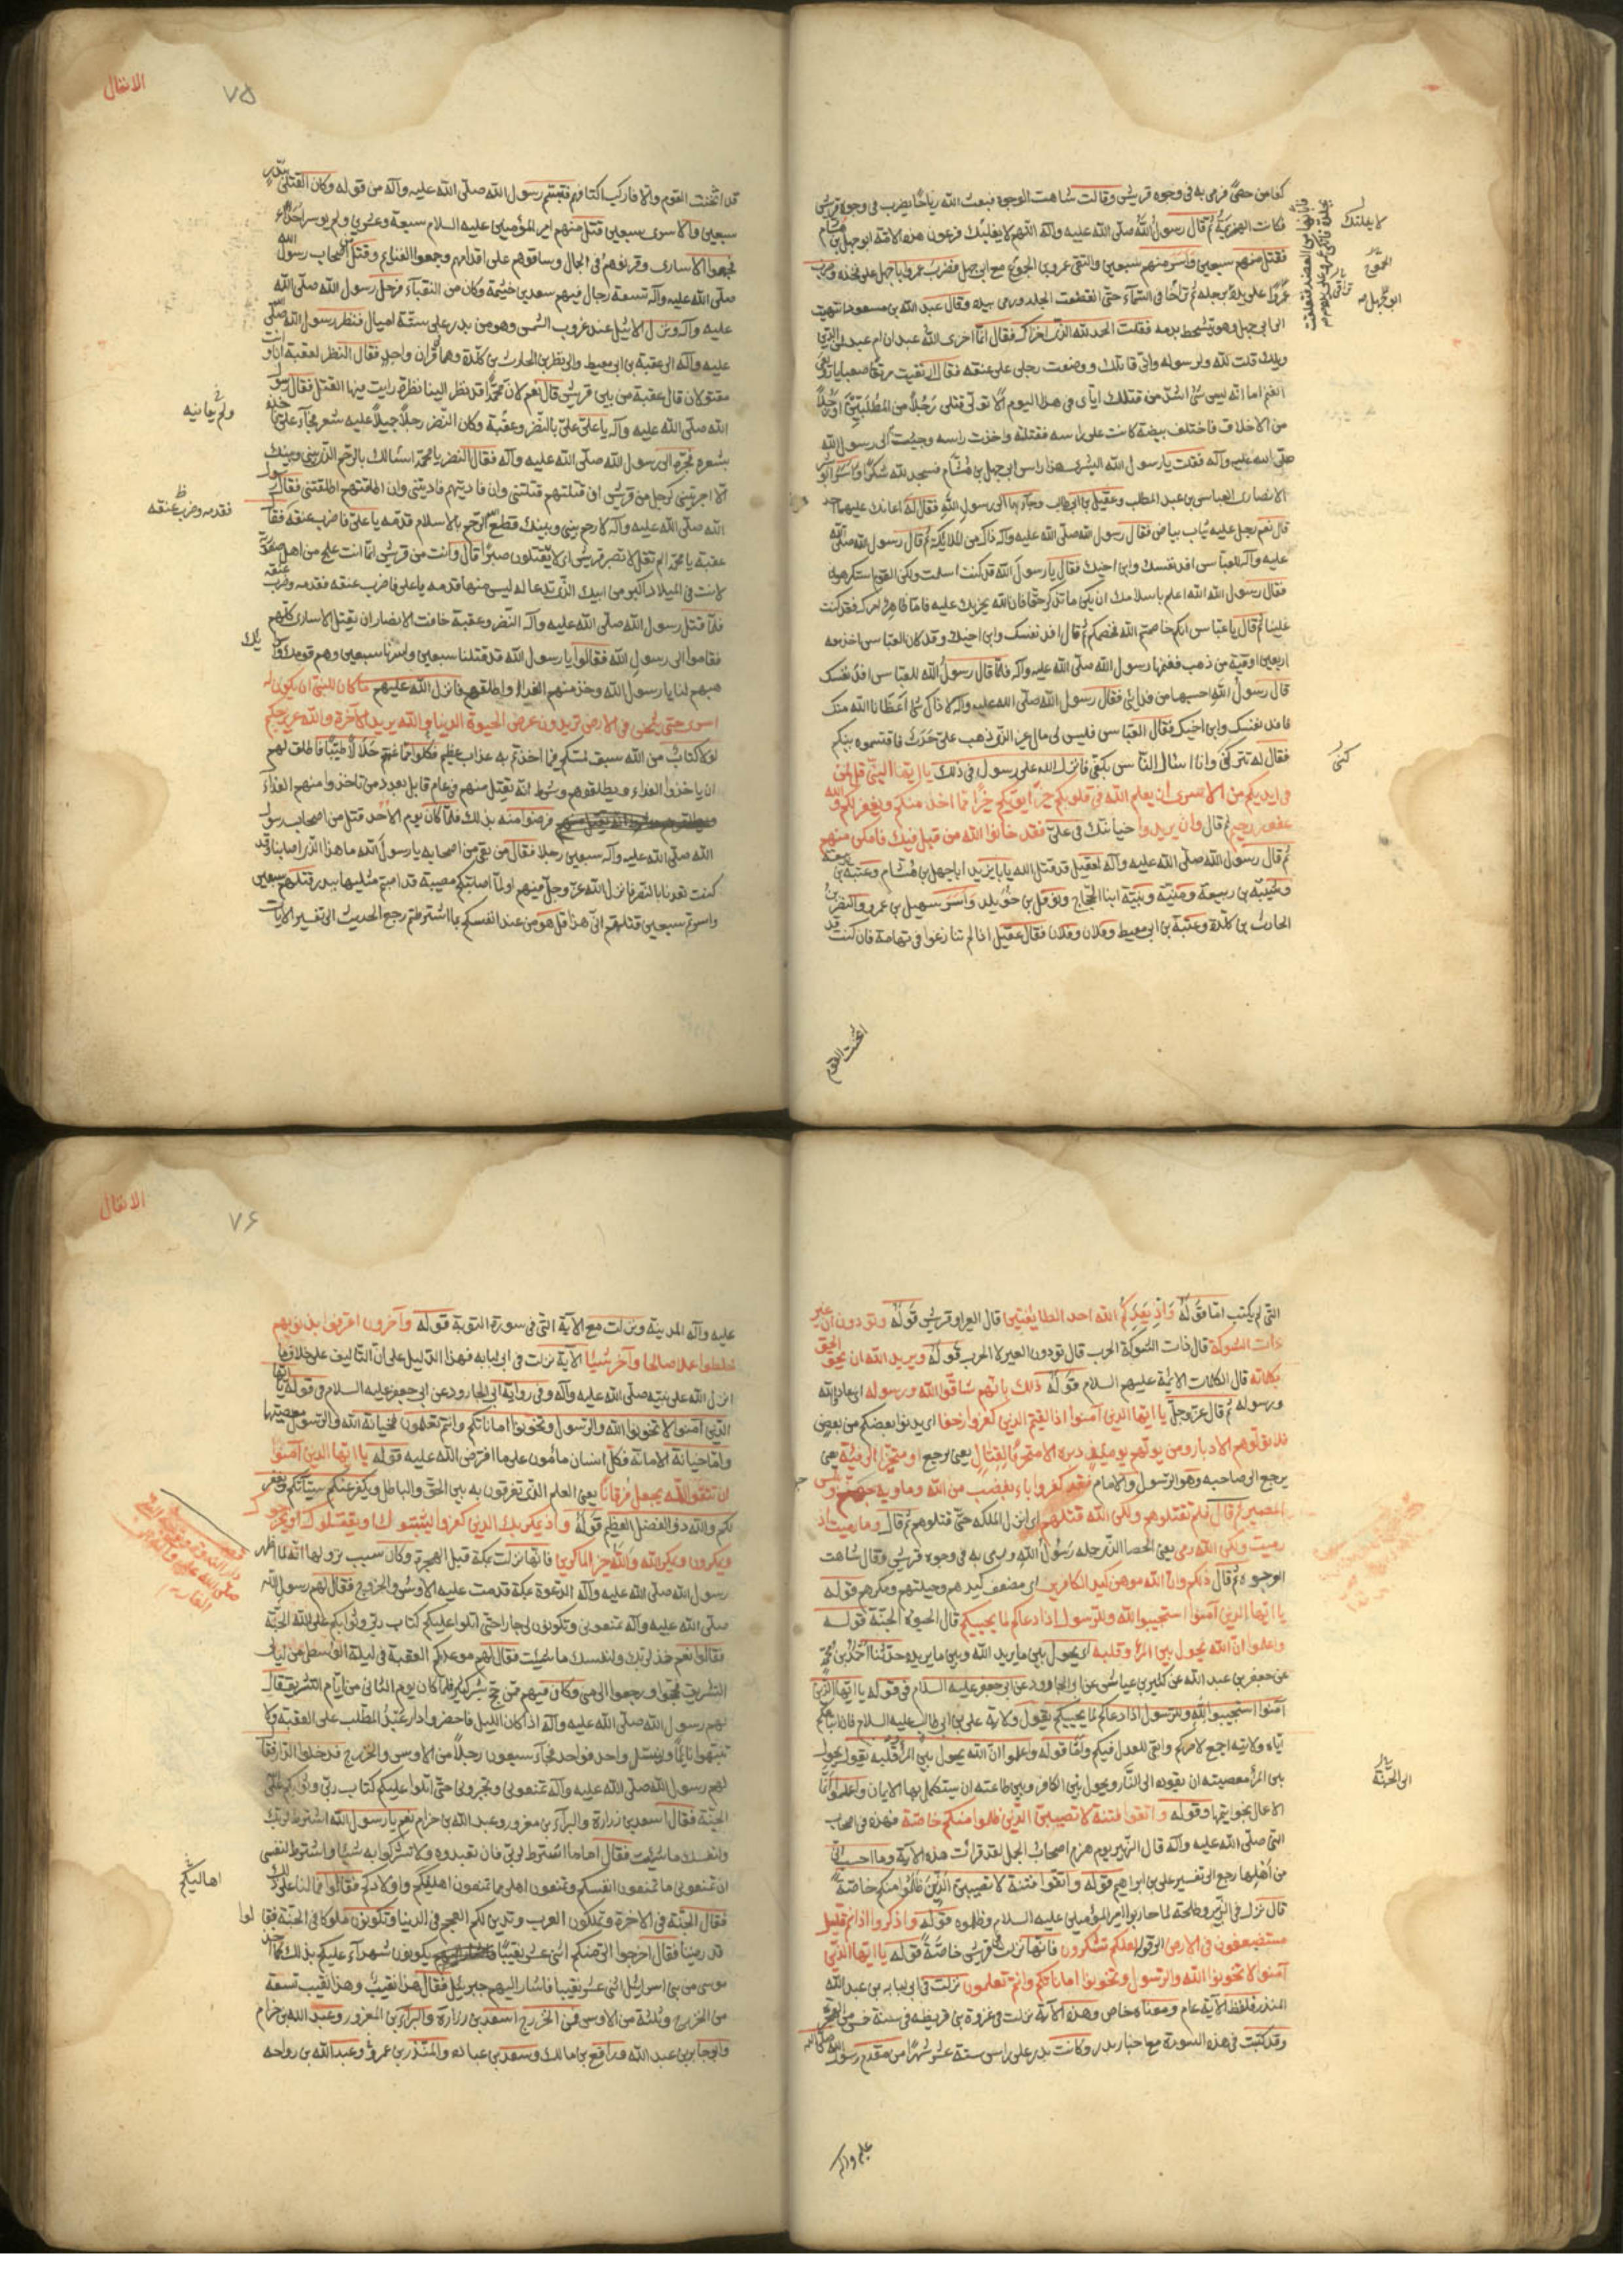 كفا من حصى فرمى به فى وجوه قريش وقالت شاهت الوجوه فبعث الله رياحا يضرب فى وجوه قريش
فكانت الهزيمة ثم قال رسول الله صلّى الله عليه وآله اللهم لا يفلتك فرعون هذه الامة ابو جهل بن هشام
فقتل منهم سبعين واسر منهم سبعين والتقى عمرو بن الجموع مع ابى جهل فضرب عمرو ابا جهل على فخذه وضرب
عمروا على يده حتى انقطعت الجلد ورمى بيده وقال عبد الله بن مسعود انتهيت
الى ابى جهل وهو يتشحط بدمه فقلت الحمد لله الذى اخزاك فقال انما اخزى الله عبد ابن ام عبد لمن الدين
ويلك قلت لله ولرسوله وانى قاتلك ووضعت رجلى على عنقه فقال ارتقيت مرتقا صعبا يا رويعى
الغنم اما انه ليس شئ اشد من قتلك اياى فى هذا اليوم الا تولى قتلى رجلا من المطلبيين او رجلا
من الاحلاف فاختلف بيضة كانت على راسه فقتلته واخذت راسه وجئت الى رسول الله
صلى الله عليه وآله فقلت يا رسول الله البشرى هذا راس ابى جهل بن هشام فسجد لله شكرا واسر ابو بشر
الانصارى العباس بن عبد المطلب وعقيل بن ابى طالب وجاء بهما الى رسول الله فقال له اعانك عليهما احد
قال نعم رجل عليه ثياب بياض فقال رسول الله صلى الله عليه وآله ذاك من الملائكة ثم قال رسول الله صلى الله
عليه وآله للعباس افد نفسك وابن اخيك فقال يا رسول الله قد كنت اسلمت ولكن القوم استكرهونى
فقال رسول الله الله اعلم باسلامك ان يكن ما تذكر حقا فان الله يجزيك عليه فاما ظاهر امرك فقد كنت
علينا ثم قال يا عباس انكم خاصمتم الله فخصمكم ثم قال افد نفسك وابن اخيك وقد كان العباس اخذ معه
اربعين اوقية من ذهب فغنمها رسول الله صلى الله عليه وآله فلما قال رسول الله للعباس افد نفسك
قال رسول الله احسبها من فدائى فقال رسول الله صلى الله عليه وآله لا ذاك شئ اعطانا الله منك
فافد نفسك وابن اخيك فقال العباس فليس لى مال غير الذى ذهب على حدث فاقتسموه بينكم
فقال له تتركنى وانا اسئال الناس بكفى فانزل الله على رسوله فى ذلك يا ايها النبى قل لمن
فى ايديكم من الاسرى ان يعلم الله فى قلوبكم خيرا يؤتكم خيرا مما اخذ منكم ويغفر لكم والله
غفور رحيم ثم قال وان يريدوا خيانتك فى على فقد خانوا الله من قبل فيك فامكن منهم
ثم قال رسول الله صلى الله عليه وآله لعقيل قد قتل الله يا با يزيد ابا جهل بن هشام وعتبة بن ربيعة
وشيبة بن ربيعة ومنبه ونبيه ابنا الحجاج ونوفل بن خويلد واسر سهيل بن عمرو والنضر بن
الحارث بن كلدة وعتبة بن ابى معيط وفلان وفلان فقال عقيل اذا لم تنازعوا فى تهامة فان كنت قد
لا يفلتنك
الجموح
كنى
اثخنت القوم
الانفال
٧٥
قد اثخنت القوم والا فاركب اكتافهم فتبسم رسول الله صلى الله عليه وآله من قوله وكان القتلى ببدر
سبعين والاسرى سبعين قتل منهم امير المؤمنين عليه السلام سبعة وعشرين ولم يوسر احدا
فجمعوا الاسارى وقرنوهم فى الجبال وساقوهم على اقدامهم وجمعوا الغنائم وقتل من اصحاب رسول الله
صلى الله عليه وآله تسعة رجال فيهم سعد بن خيثمة وكان من النقباء فرحل رسول الله صلى الله
عليه وآله ونزل الاثيل عند غروب الشمس وهو من بدر على ستة اميال فنظر رسول الله صلى الله
عليه وآله الى عقبة بن ابى معيط والى نضر بن الحارث بن كلدة وهما قران واحد فقال النضر لعقبة انا وانت
مقتولان قال عقبة من بين قريش قال نعم لان محمدا قد نظر الينا نظرة رايت فيها القتل فقال رسول
الله صلى الله عليه وآله يا على على بالنضر وعقبة وكان النضر رجلا جميلا عليه شعر فجاء على فاخذ
بشعره فجره الى رسول الله صلى الله عليه وآله فقال النضر يا محمد اسئالك بالرحم الذى بينى وبينك
الا اجريتنى كرجل من قريش ان قتلتهم قتلتنى وان فاديتهم فاديتنى وان اطلقتهم اطلقتنى فقال رسول
الله صلى الله عليه وآله لا رحم بينى وبينك قطع الله الرحم بالاسلام قدمه يا على فاضرب عنقه فقال
عقبة يا محمد الم تقل لا تصبر قريش اى لا يقتلون صبرا قال وانت من قريش انما انت علج من اهل صفورية
لانت فى الميلاد اكبر من ابيك الذى تدعا له ليس منها قدمه يا على فاضرب عنقه فقدمه وضرب عنقه
فلما قتل رسول الله صلى الله عليه وآله النضر وعقبة خافت الانصار ان يقتل الاسارى كلهم
فقاموا الى رسول الله فقالوا يا رسول الله قد قتلنا سبعين واسرنا سبعين وهم قومك واسا
هبهم لنا يا رسول الله وخذ منهم الفداء واطلقهم فانزل الله عليهم ما كان للنبى ان يكون له
اسرى حتى يثخن فى الارض تريدون عرض الحيوة الدنيا والله يريد الآخرة والله عزيز حكيم
لولا كتاب من الله سبق لمسكم فيما اخذتم به عذاب عظيم فكلوا مما غنمتم حلالا طيبا فاطلق لهم
ان ياخذوا الفداء ويطلقوهم وشرط انه يقتل منهم فى عام قابل بعدد من تاخذوا منهم الفداء
فرضوا منه بذلك فلما كان يوم الاحد قتل من اصحاب رسول
الله صلى الله عليه وآله سبعين رجلا فقال من بقى من اصحابه يا رسول الله ما هذا الذى اصابنا وقد
كنت تعدنا بالنصر فانزل الله عز وجل فيهم اولما اصابتكم مصيبة قد اصبتم مثليها ببدر قتلتم سبعين
واسرتم سبعين قلتم انى هذا قل هو من عند انفسكم بما اشترطتم رجع الحديث الى تفسير الايات
فقدمه وضرب عنقه
التى لم يكتب اما قوله واذ يعدكم الله احدى الطايفتين قال العير او قريش قوله وتودون ان غير
ذات الشوكة قال ذات الشوكة الحرب قال تودون العير لا الحرب قوله ويريد الله ان يحق الحق
بكلماته قال الكلمات الائمة عليهم السلام قوله ذلك بانهم شاقوا الله ورسوله اى عادوا الله
ورسوله ثم قال عز وجل يا ايها الذين آمنوا اذا لقيتم الذين كفروا زحفا اى يدنوا بعضكم من بعض
فلا تولوهم الادبار ومن يولهم يومئذ دبره الا متحرفا لقتال يعنى يرجع او متحيزا الى فئة يعنى
يرجع الى صاحبه وهو الرسول والامام فقد كفر وباء بغضب من الله وماويه جهنم وبئس
المصير ثم قال فلم تقتلوهم ولكن الله قتلهم اى انزل الملئكة حتى قتلوهم ثم قال وما رميت اذ
رميت ولكن الله رمى يعنى الحصا الذى حمله رسول الله ورمى به فى وجوه قريش وقال شاهت
الوجوه ثم قال ذلكم وان الله موهن كيد الكافرين اى مضعف كيدهم وحيلتهم ومكرهم قوله
يا ايها الذين آمنوا استجيبوا لله وللرسول اذا دعاكم لما يحييكم قال الحيوة الجنة قوله
واعلموا ان الله يحول بين المرء وقلبه اى يحول بين ما يريد الله وبين ما يريده حدثنا احمد بن محمد
عن جعفر بن عبد الله عن كثير بن عياش عن ابى الجارود عن ابى جعفر عليه السلام فى قوله يا ايها الذين
آمنوا استجيبوا لله وللرسول اذا دعاكم لما يحييكم يقول ولاية على بن ابى طالب عليه السلام فان اتباعكم
اياه ولايته اجمع لامركم وابقى للعدل فيكم واما قوله واعلموا ان الله يحول بين المرء وقلبه يقول يحول
بين المرء ومعصيته ان يقوده الى النار ويحول بين الكافر وبين طاعته ان يستكمل بها الايمان واعلموا انما
الاعمال بخواتيمها وقوله واتقوا فتنة لا تصيبن الذين ظلموا منكم خاصة فهذه فى اصحاب
النبى صلى الله عليه وآله قال الزبير يوم هزم اصحاب الجمل لقد قرات هذه الآية وما احسب انى
من اهلها رجع الى تفسير على بن ابراهيم قوله واتقوا فتنة لا تصيبن الذين ظلموا منكم خاصة
قال نزل فى الزبير وطلحة لما حاربوا امير المؤمنين عليه السلام وظلموه قوله واذكروا اذ انتم قليل
مستضعفون فى الارض الى قوله لعلكم تشكرون فانها نزلت فى قريش خاصة قوله يا ايها الذين
آمنوا لا تخونوا الله والرسول وتخونوا اماناتكم وانتم تعلمون نزلت فى ابى لبابه بن عبد الله
المنذر فلفظ الآية عام ومعناه خاص وهذه الآية نزلت فى غزوة بنى قريظه فى سنة خمس من الهجرة
وقد كتبت فى هذه السورة مع اخبار بدر وكانت بدر على راس ستة عشر شهرا من مقدم رسول الله صلى الله
الى الجنة
عليه وآله
الانفال
٧۶
عليه وآله المدينة ونزلت مع الآية التى فى سورة التوبة قوله وآخرون اعترفوا بذنوبهم
خلطوا عملا صالحا وآخر سيئا الآية نزلت فى ابى لبابه فهذا الدليل على ان التاليف على خلاف ما
انزل الله على نبيه صلى الله عليه وآله وفى رواية ابى الجارود عن ابى جعفر عليه السلام فى قوله يا ايها
الذين آمنوا لا تخونوا الله والرسول وتخونوا اماناتكم وانتم تعلمون فخيانة الله والرسول معصيتهما
واما خيانة الامانة فكل انسان مامون على ما افترض الله عليه قوله يا ايها الذين آمنوا
ان تتقوا الله يجعل لكم فرقانا يعنى العلم الذى تفرقون به بين الحق والباطل ويكفر عنكم سيئاتكم ويغفر
لكم والله ذو الفضل العظيم قوله واذ يمكر بك الذين كفروا ليثبتوك او يقتلوك او يخرجوك
ويمكرون ويمكر الله والله خير الماكرين فانها نزلت بمكة قبل الهجرة وكان سبب نزولها انه لما اظهر
رسول الله صلى الله عليه وآله الدعوة بمكة قدمت عليه الاوس والخزرج فقال لهم رسول الله
صلى الله عليه وآله تمنعونى وتكونون لى جارا حتى اتلوا عليكم كتاب ربى وثوابكم على الله الجنة
فقالوا نعم خذ لربك ولنفسك ما شئت فقال لهم موعدكم العقبة فى ليلة الوسطى من ليالى
التشريق فحجوا ورجعوا الى منى وكان فيهم ممن حج بشر كثير فلما كان يوم الثانى من ايام التشريق قال
لهم رسول الله صلى الله عليه وآله اذا كان الليل فاحضروا دار عبد المطلب على العقبة ولا
تنبهوا نائما ولينسل واحد فواحد فجاء سبعون رجلا من الاوس والخزرج فدخلوا الدار فقال
لهم رسول الله صلى الله عليه وآله تمنعونى وتجيرونى حتى اتلوا عليكم كتاب ربى وثوابكم على الله
الجنة فقال اسعد بن زرارة والبراء بن معرور وعبد الله بن حزام نعم يا رسول الله اشترط لربك
ولنفسك ما شئت فقال اما ما اشترط لربى فان تعبدوه ولا تشركوا به شيئا واشترط لنفسى
ان تمنعونى ما تمنعون انفسكم وتمنعون اهلى مما تمنعون اهليكم واولادكم فقالوا فما لنا على ذلك
فقال الجنة فى الآخرة وتملكون العرب وتدين لكم العجم فى الدنيا وتكونون ملوكا فى الجنة فقالوا
قد رضينا فقال اخرجوا الى منكم اثنى عشر نقيبا يكونون شهداء عليكم بذلك كما اخذ
موسى من بنى اسرائيل اثنى عشر نقيبا فاشار اليهم جبرئيل فقال هذا نقيب وهذا نقيب تسعة
من الخزرج وثلثة من الاوس فمن الخزرج اسعد بن زرارة والبراء بن المعرور وعبد الله بن حزام
وابو جابر بن عبد الله ورافع بن مالك وسعد بن عباده والمنذر بن عمرو وعبد الله بن رواحه
اهاليكم